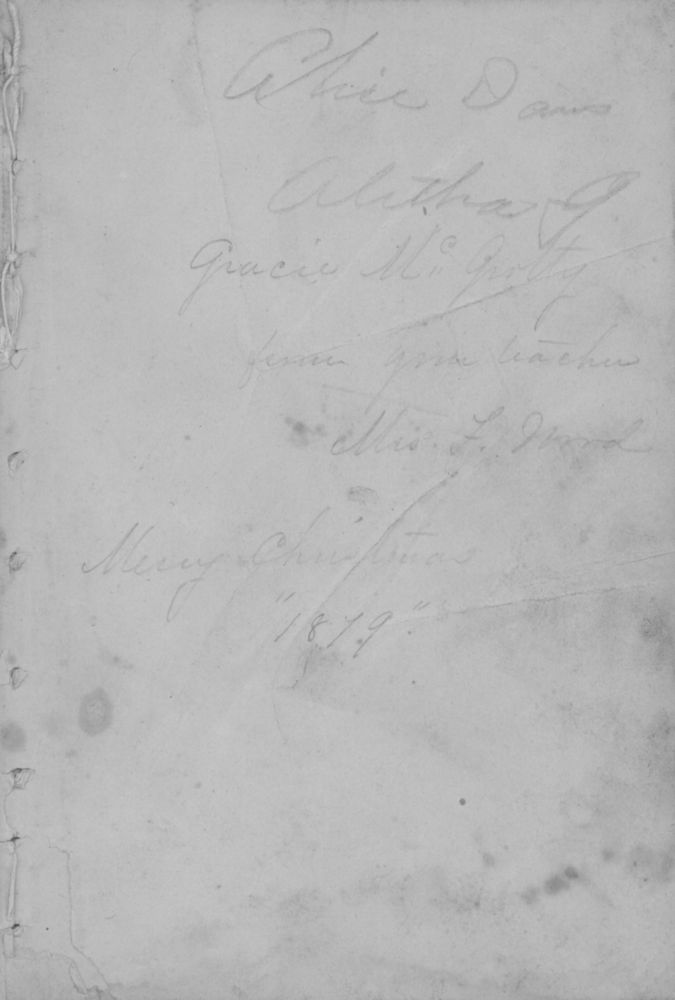 Alice Davis
Alitha G
Gracie McGrotty
from your teacher
Mrs. F. Wood
Merry Christmas
"1879"